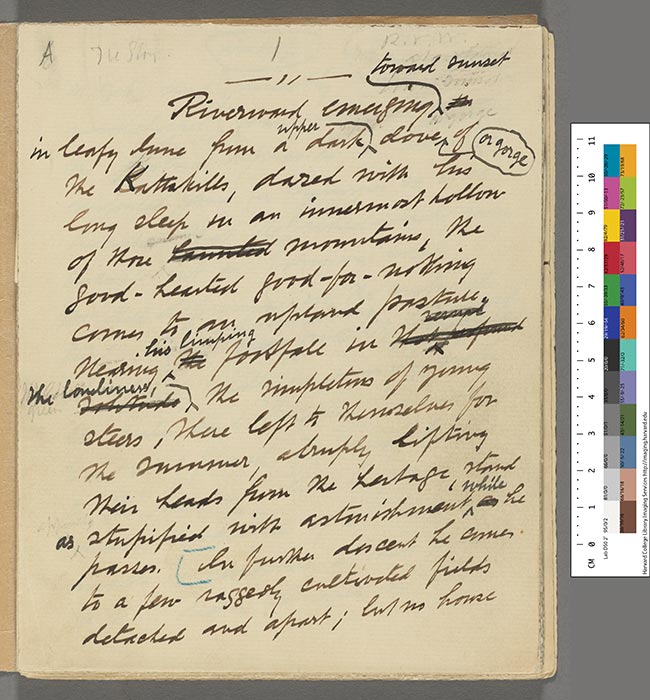 A
1
toward sunset
Riverward emerging,
in leafy June from a upper dark, clove, of
or gorge
the Kattskills, dazed with his
long sleep in an innermost hollow
of those haunted mountains, the
good-hearted good-for-nothing
comes to an upland pasture.
Hearing his limping footfall in
the loneliness, the simpletons of young
steers, there left to themselves for
the summer, abruptly lifting
their heads from the herbage, stand
as stupified with astonishment while he
passes. In further descent he comes
to a few raggedly cultivated fields
detached and apart; but no house
CM 0 1 2 3 4 5 6 7 8 9 10 11
Harvard College Library Imaging Services http://imaging.harvard.edu